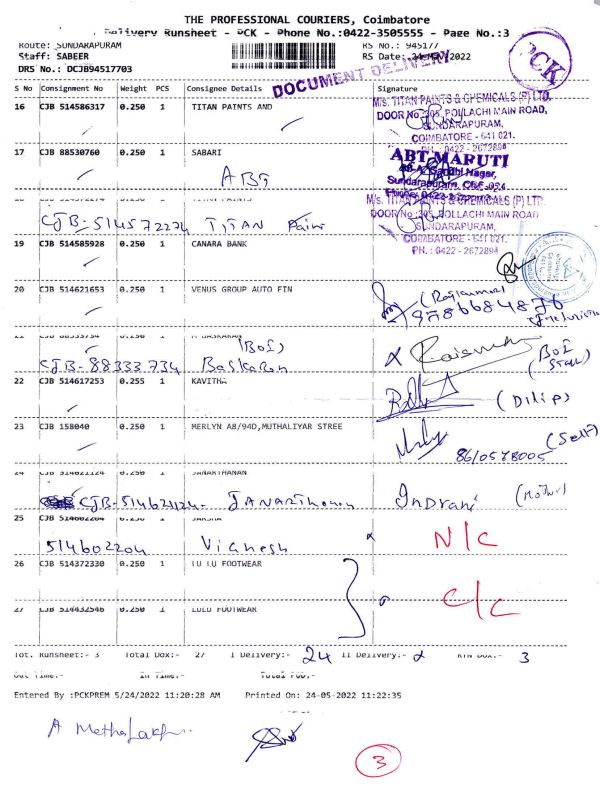 THE PROFESSIONAL COURIERS, Coimbatore
Delivery Runsheet - PCK - Phone No.:0422-3505555 - Page No.:3
Route: SUNDARAPURAM RS No.: 945177
Staff: SABEER RS Date: 24-05-2022
DRS No.: DCJB94517703
DOCUMENT DELIVERY
PCK
S No Consignment No Weight PCS Consignee Details Signature
16 CJB 514586317 0.250 1 TITAN PAINTS AND
M/s. TITAN PAINTS & CHEMICALS (P) LTD.
DOOR No :205, POLLACHI MAIN ROAD,
SUNDARAPURAM,
COIMBATORE - 641 021.
PH. : 0422 - 2672894
17 CJB 88530760 0.250 1 SABARI
ABT
ABT MARUTI
Gandhi Nagar,
Sundarapuram, CBE
M/s. TITAN PAINTS & CHEMICALS (P) LTD.
DOOR No :205, POLLACHI MAIN ROAD
SUNDARAPURAM,
COIMBATORE - 641 021.
PH. : 0422 - 2672894
CJB-514572274 TITAN Pain
19 CJB 514585928 0.250 1 CANARA BANK
20 CJB 514621653 0.250 1 VENUS GROUP AUTO FIN
(BOI)
CJB-88333734 Baskaran
(BOI Staff)
22 CJB 514617253 0.255 1 KAVITHA
(Dilip)
23 CJB 158040 0.250 1 MERLYN A8/94D,MUTHALIYAR STREE
8610578005 (Self)
24 CJB 514621124 0.250 1 JANARTHANAN
CJB-514621124- JANARThanan Indrani (Mother)
25 CJB 514602204 0.250 1
514602204 Vignesh N/C
26 CJB 514372330 0.250 1 LU LU FOOTWEAR
C/C
27 CJB 514432546 0.250 1 LULU FOOTWEAR
Tot. Runsheet:- 3 Total Dox:- 27 I Delivery:- 24 II Delivery:- 2 RTN Dox:- 3
Out Time:- In Time:- Total POD:-
Entered By :PCKPREM 5/24/2022 11:20:28 AM Printed On: 24-05-2022 11:22:35
3